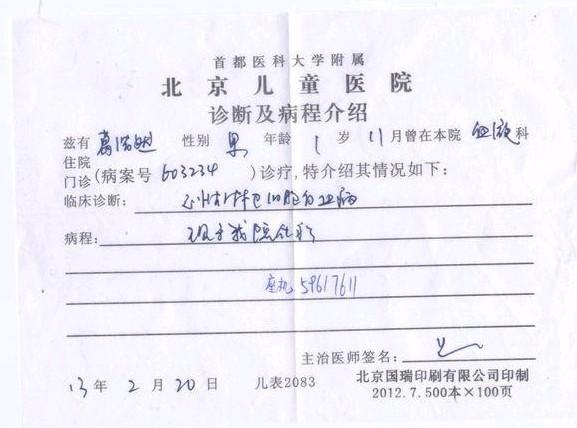 首都医科大学附属
北京儿童医院
诊断及病程介绍
兹有 葛 性别 男 年龄 1 岁 11 月曾在本院 血液 科
住院
门诊(病案号 603234 )诊疗,特介绍其情况如下:
临床诊断: 细胞白血病
病程: 现于我院化疗
座机 59617611
主治医师签名:
13 年 2 月 20 日 儿表2083 北京国瑞印刷有限公司印制
2012.7.500本×100页